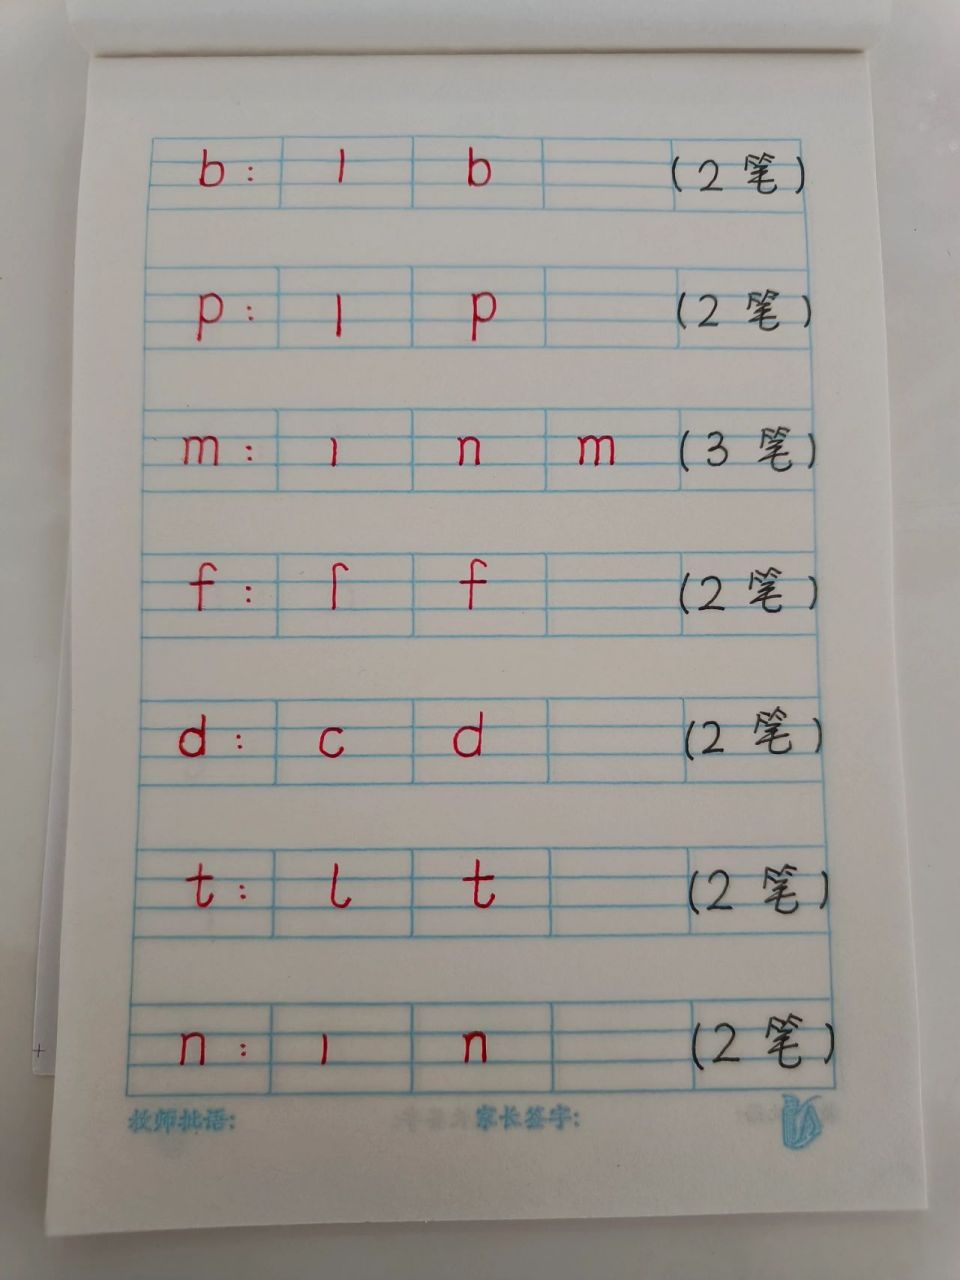 b: l b (2笔)
p: l p (2笔)
m: ı n m (3笔)
f: ſ f (2笔)
d: c d (2笔)
t: l t (2笔)
n: ı n (2笔)
教师批语: 家长签字: